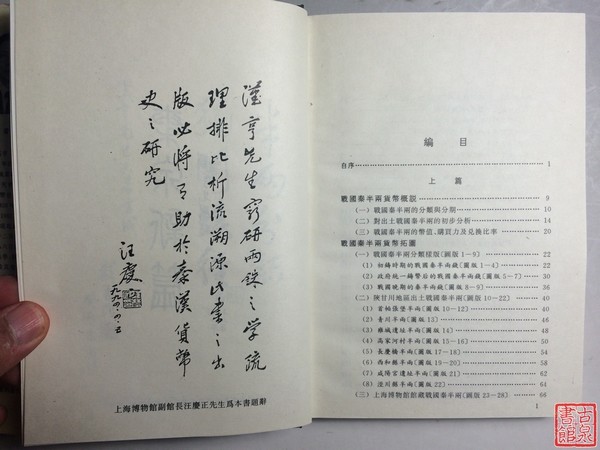 漢亨先生窮研兩銖之学疏
理排比析流溯源此書之出
版必將有助於秦漢貨幣
史之研究
汪慶正
一九九四·四·五
上海博物館副館長汪慶正先生爲本書題辭
編目
自序 1
上篇
戰國秦半兩貨幣概説 9
(一)戰國秦半兩的分類與分期 10
(二)對出土戰國秦半兩的初步分析 14
(三)戰國秦半兩的幣值、購買力及兑換比率 20
戰國秦半兩貨幣拓圖
(一)戰國秦半兩分類樣版(圖版1－9) 22
(1)初鑄時期的戰國秦半兩錢(圖版1－4) 22
(2)政府統一鑄幣后的戰國秦半兩錢(圖版5－7) 30
(3)戰國晚期的戰國秦半兩錢(圖版8－9) 36
(二)陝甘川地區出土戰國秦半兩(圖版10－22) 40
(1)首帕張堡半兩(圖版10－12) 40
(2)青川半兩(圖版13) 46
(3)雍城遺址半兩(圖版14) 48
(4)高家河村半兩(圖版15－16) 50
(5)長慶橋半兩(圖版17－18) 54
(6)西和縣半兩(圖版19－20) 58
(7)咸陽宮遺址半兩(圖版21) 62
(8)涇川縣半兩(圖版22) 64
(三)上海博物館館藏戰國秦半兩(圖版23－28) 66
1
古泉書館